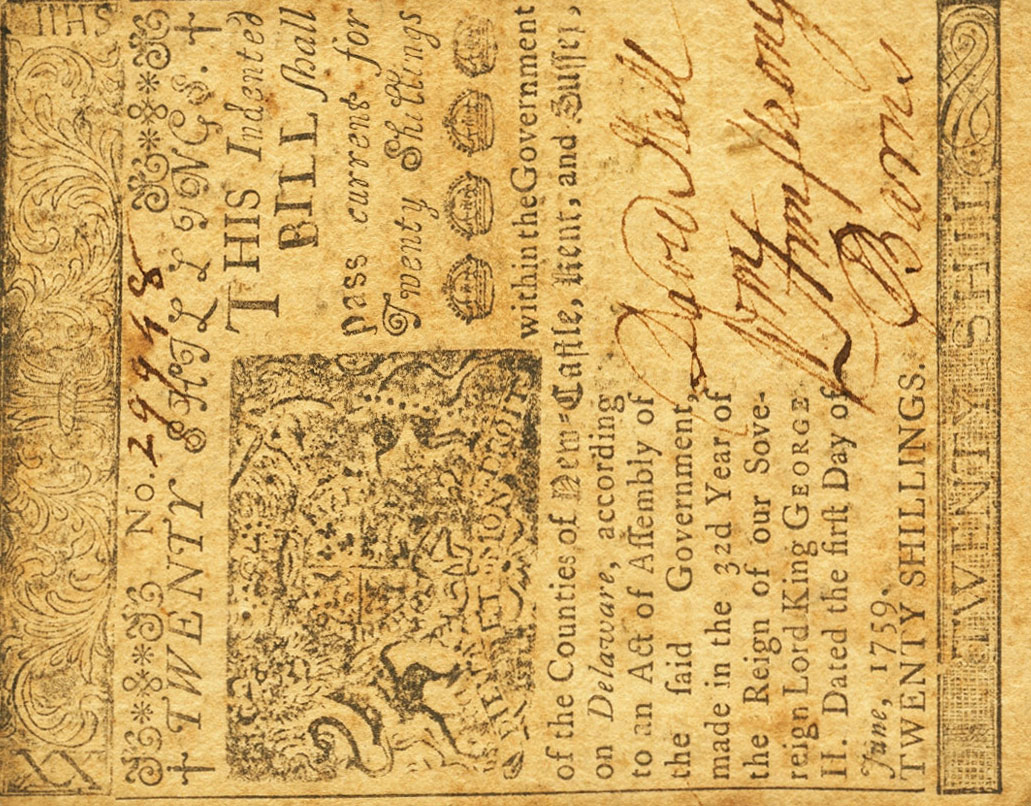 No. 29948
TWENTY SHILLINGS.
THIS Indented
BILL ſhall
Paſs current for
Twenty Shillings
DIEU ET MON DROIT
within the Government
of the Counties of New-Caſtle, Kent, and Suſſex,
on Delaware, according
to an Act of Aſſembly of
the ſaid Government,
made in the 32d Year of
the Reign of our Sove-
reign Lord King GEORGE
II. Dated the firſt Day of
June, 1759.
TWENTY SHILLINGS.
Davd Hall
Wm Armstrong
Barns
TWENTY SHIL